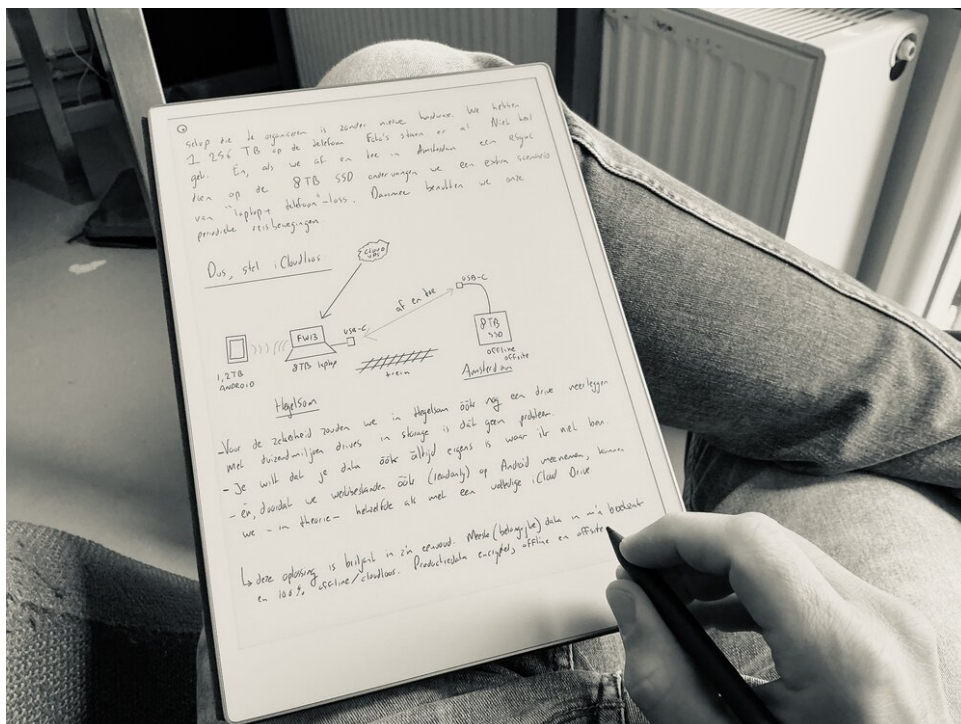 setup die te organiseren is zonder nieuwe hardware. We hebben
1 256 TB op de telefoon staan er al. Niet heel
gek. En, als we af en toe in Amsterdam een rsync
doen op de 8TB SSD ondervangen we een extra scenario
van "laptop + telefoon"-loss. Daarmee benutten we onze
periodieke reisbewegingen
Dus, stel iCloudloos
CLOUD
VPS
af en toe
USB-C
FW13
USB-C
8TB
SSD
1,2TB
ANDROID
8TB laptop
trein
offline
offsite
Amsterdam
Hegelsom
- Voor de zekerheid zouden we in Hegelsom óók nog een drive neerleggen
met duizendmiljoen drives in storage is dát geen probleem.
- Je wilt dat je data óók áltijd ergens is waar ik niet ben
- én, doordat we werkbestanden óók (readonly) op Android meenemen, kunnen
we - in theorie - hetzelfde als met een volledige iCloud Drive
↳ deze oplossing is briljant in z'n eenvoud. Meeste (belangrijke) data in m'n broekzak
en 100% offline/cloudloos. Productiedata encrypted, offline en offsite